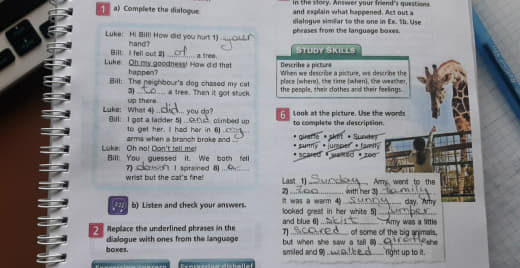 1 a) Complete the dialogue.
Luke: Hi Bill! How did you hurt 1) your
hand?
Bill: I fell out 2) of a tree.
Luke: Oh my goodness! How did that
happen?
Bill: The neighbour's dog chased my cat
3) to a tree. Then it got stuck
up there.
Luke: What 4) did you do?
Bill: I got a ladder 5) and climbed up
to get her. I had her in 6) my
arms when a branch broke and
Luke: Oh no! Don't tell me!
Bill: You guessed it. We both fell
7) I sprained 8)
wrist but the cat's fine!
b) Listen and check your answers.
2 Replace the underlined phrases in the
dialogue with ones from the language
boxes.
Expressing concern Expressing disbelief
in the story. Answer your friend's questions
and explain what happened. Act out a
dialogue similar to the one in Ex. 1b. Use
phrases from the language boxes.
STUDY SKILLS
Describe a picture
When we describe a picture, we describe the
place (where), the time (when), the weather,
the people, their clothes and their feelings.
6 Look at the picture. Use the words
to complete the description.
• giraffe • skirt • Sunday
• sunny • jumper • family
• scared • walked • zoo
Last 1) Sunday Amy went to the
2) zoo with her 3) family
It was a warm 4) sunny day. Amy
looked great in her white 5) jumper
and blue 6) skirt Amy was a little
7) scared of some of the big animals,
but when she saw a tall 8) giraffe she
smiled and 9) walked right up to it.